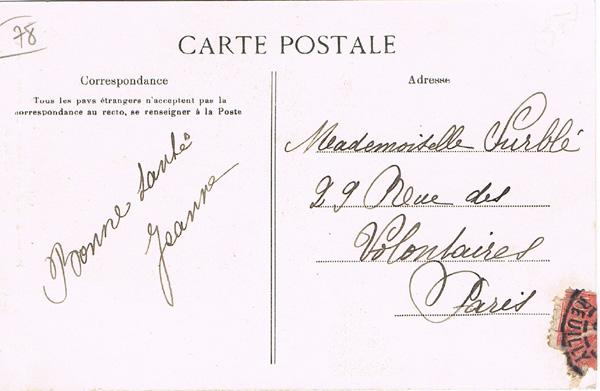 78
CARTE POSTALE
Correspondance
Tous les pays étrangers n'acceptent pas la
correspondance au recto, se renseigner à la Poste
Bonne santé
Jeanne
Adresse
Mademoiselle Surblé
29 Rue des
Volontaires
Paris
NEUILLY